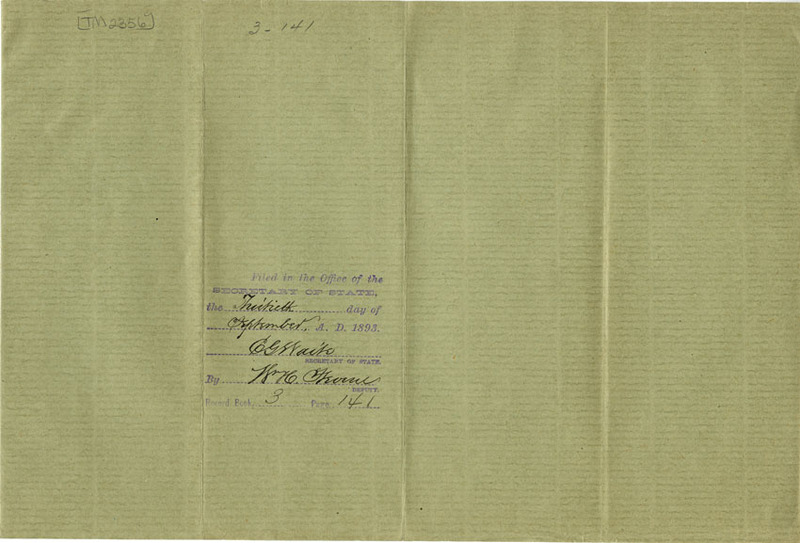 [TM2356]
3-141
Filed in the Office of the
SECRETARY OF STATE,
the Thirtieth day of
September, A. D. 1893.
E G Waite
SECRETARY OF STATE.
By Wm H.
DEPUTY.
Record Book, 3 Page, 141